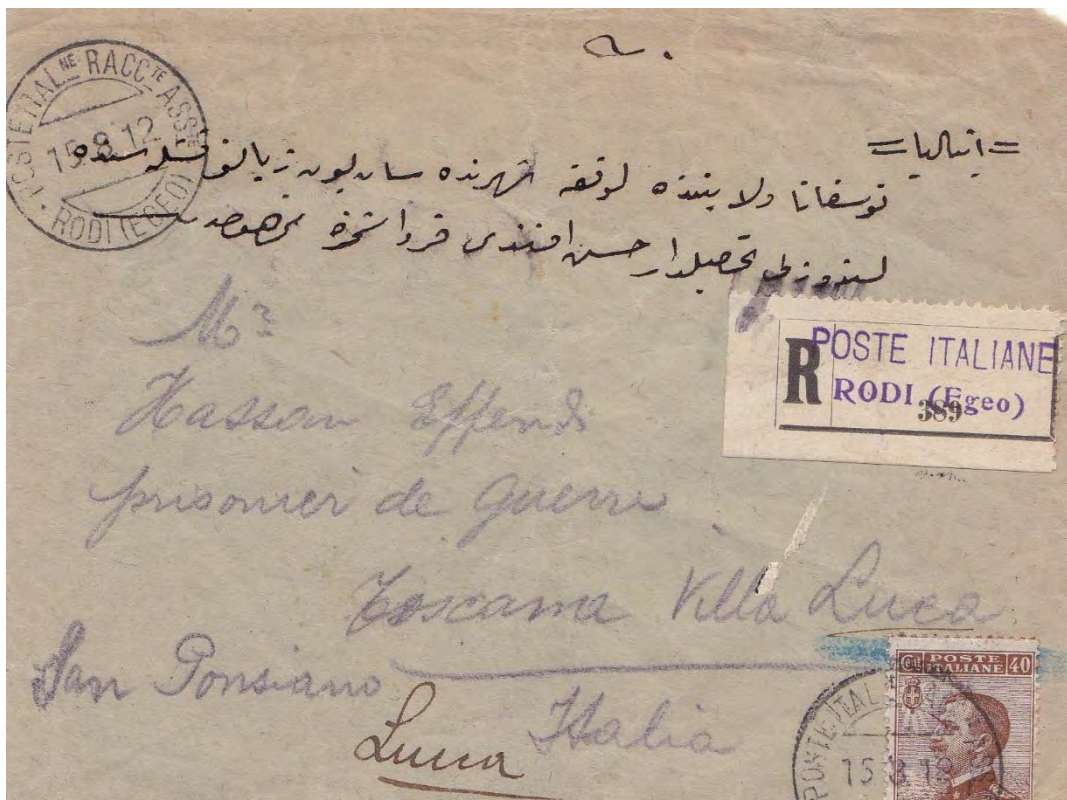 POSTE ITALNE RACCTE ASSTE
15.8.12
RODI (EGEO)
=ایتالیا=
توسقانا ولایتنده لوقه شهرنده سان پون زیانو قشله سنده
تحصیلدار حسن افندی مخصوصدر
Mr
Hassan Effendi
prisonier de guerre
Toscana Villa Luca
San Ponsiano
Italia
Lucca
R
POSTE ITALIANE
RODI (Egeo)
389
POSTE ITALIANE 40
15.8.12